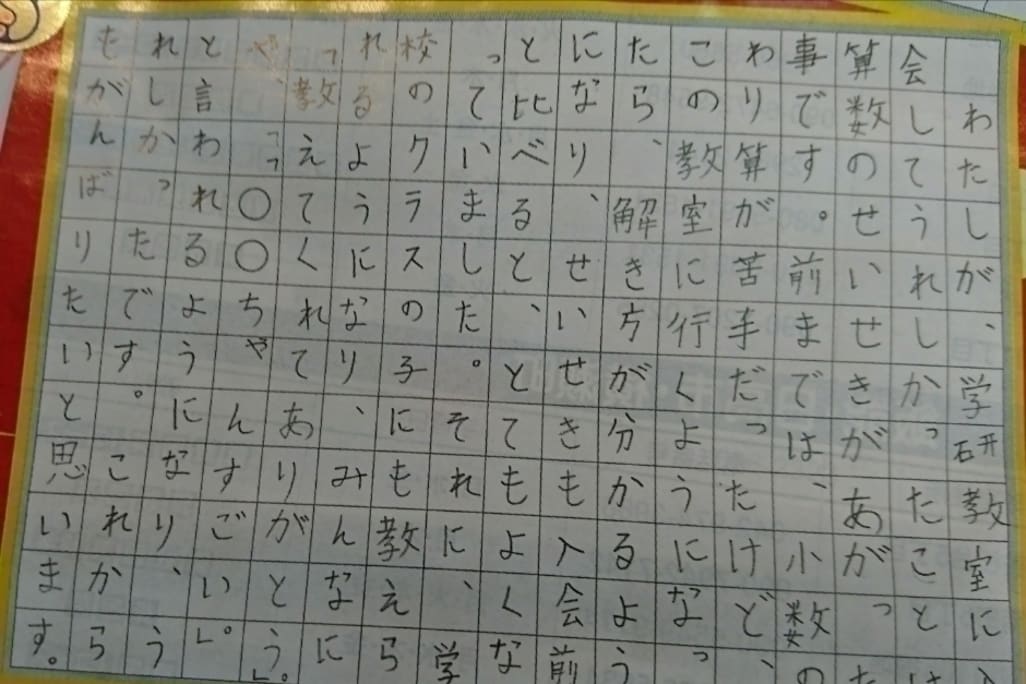 わたしが、学研教室に入
会してうれしかったことは
算数のせいせきがあがった
事です。前までは、小数の
わり算が苦手だったけど、
この教室に行くようになっ
たら、解き方が分かるよう
になり、せいせきも入会前
と比べると、とてもよくな
っていました。それに、学
校のクラスの子にも教えら
れるようになり、みんなに
「教えてくれてありがとう」。
や、「○○ちゃんすごい」。
と言われるようになり、う
れしかったです。これから
もがんばりたいと思います。